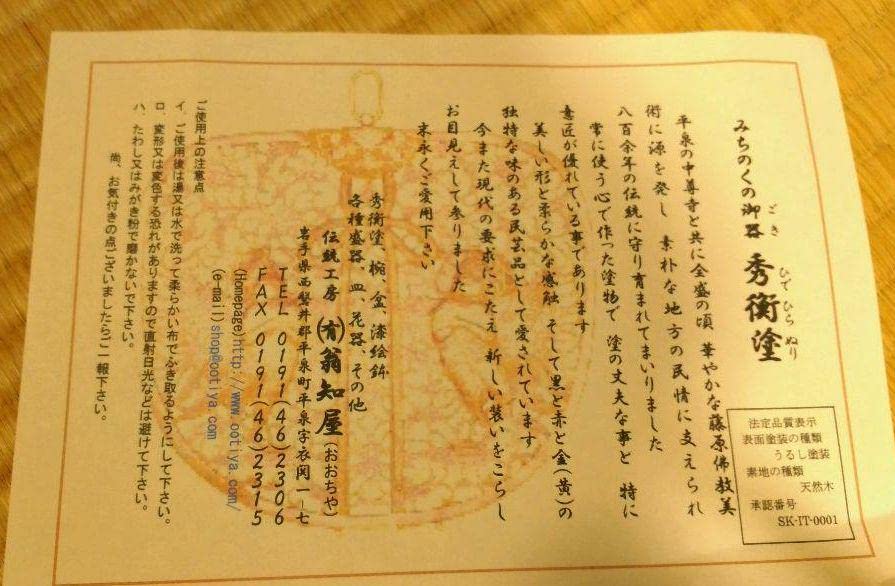 みちのくの御器 秀衡塗
ごき ひでひらぬり
平泉の中尊寺と共に全盛の頃 華やかな藤原佛教美
術に源を発し 素朴な地方の民情に支えられ
八百余年の伝統に守り育まれてまいりました
常に使う心で作った塗物で 塗の丈夫な事と 特に
意匠が優れている事であります
美しい形と柔らかな感触 そして黒と赤と金(黄)の
独特な味のある民芸品として愛されています
今また現代の要求にこたえ 新しい装いをこらし
お目見えして参りました
末永くご愛用下さい
秀衡塗、椀、盆、漆絵鉢
各種盛器、皿、花器、その他
伝統工房 ㈲翁知屋(おおちや)
岩手県西磐井郡平泉町平泉字衣関一ー七
TEL 0191(46)2306
FAX 0191(46)2315
(Homepage)http://www.ootiya.com/
(e-mail)shop@ootiya.com
ご使用上の注意点
イ、ご使用後は湯又は水で洗って柔らかい布でふき取るようにして下さい。
ロ、変形又は変色する恐れがありますので直射日光などは避けて下さい。
ハ、たわし又はみがき粉で磨かないで下さい。
尚、お気付きの点ございましたらご一報下さい。
法定品質表示
表面塗装の種類
うるし塗装
素地の種類
天然木
承認番号
SK-IT-0001